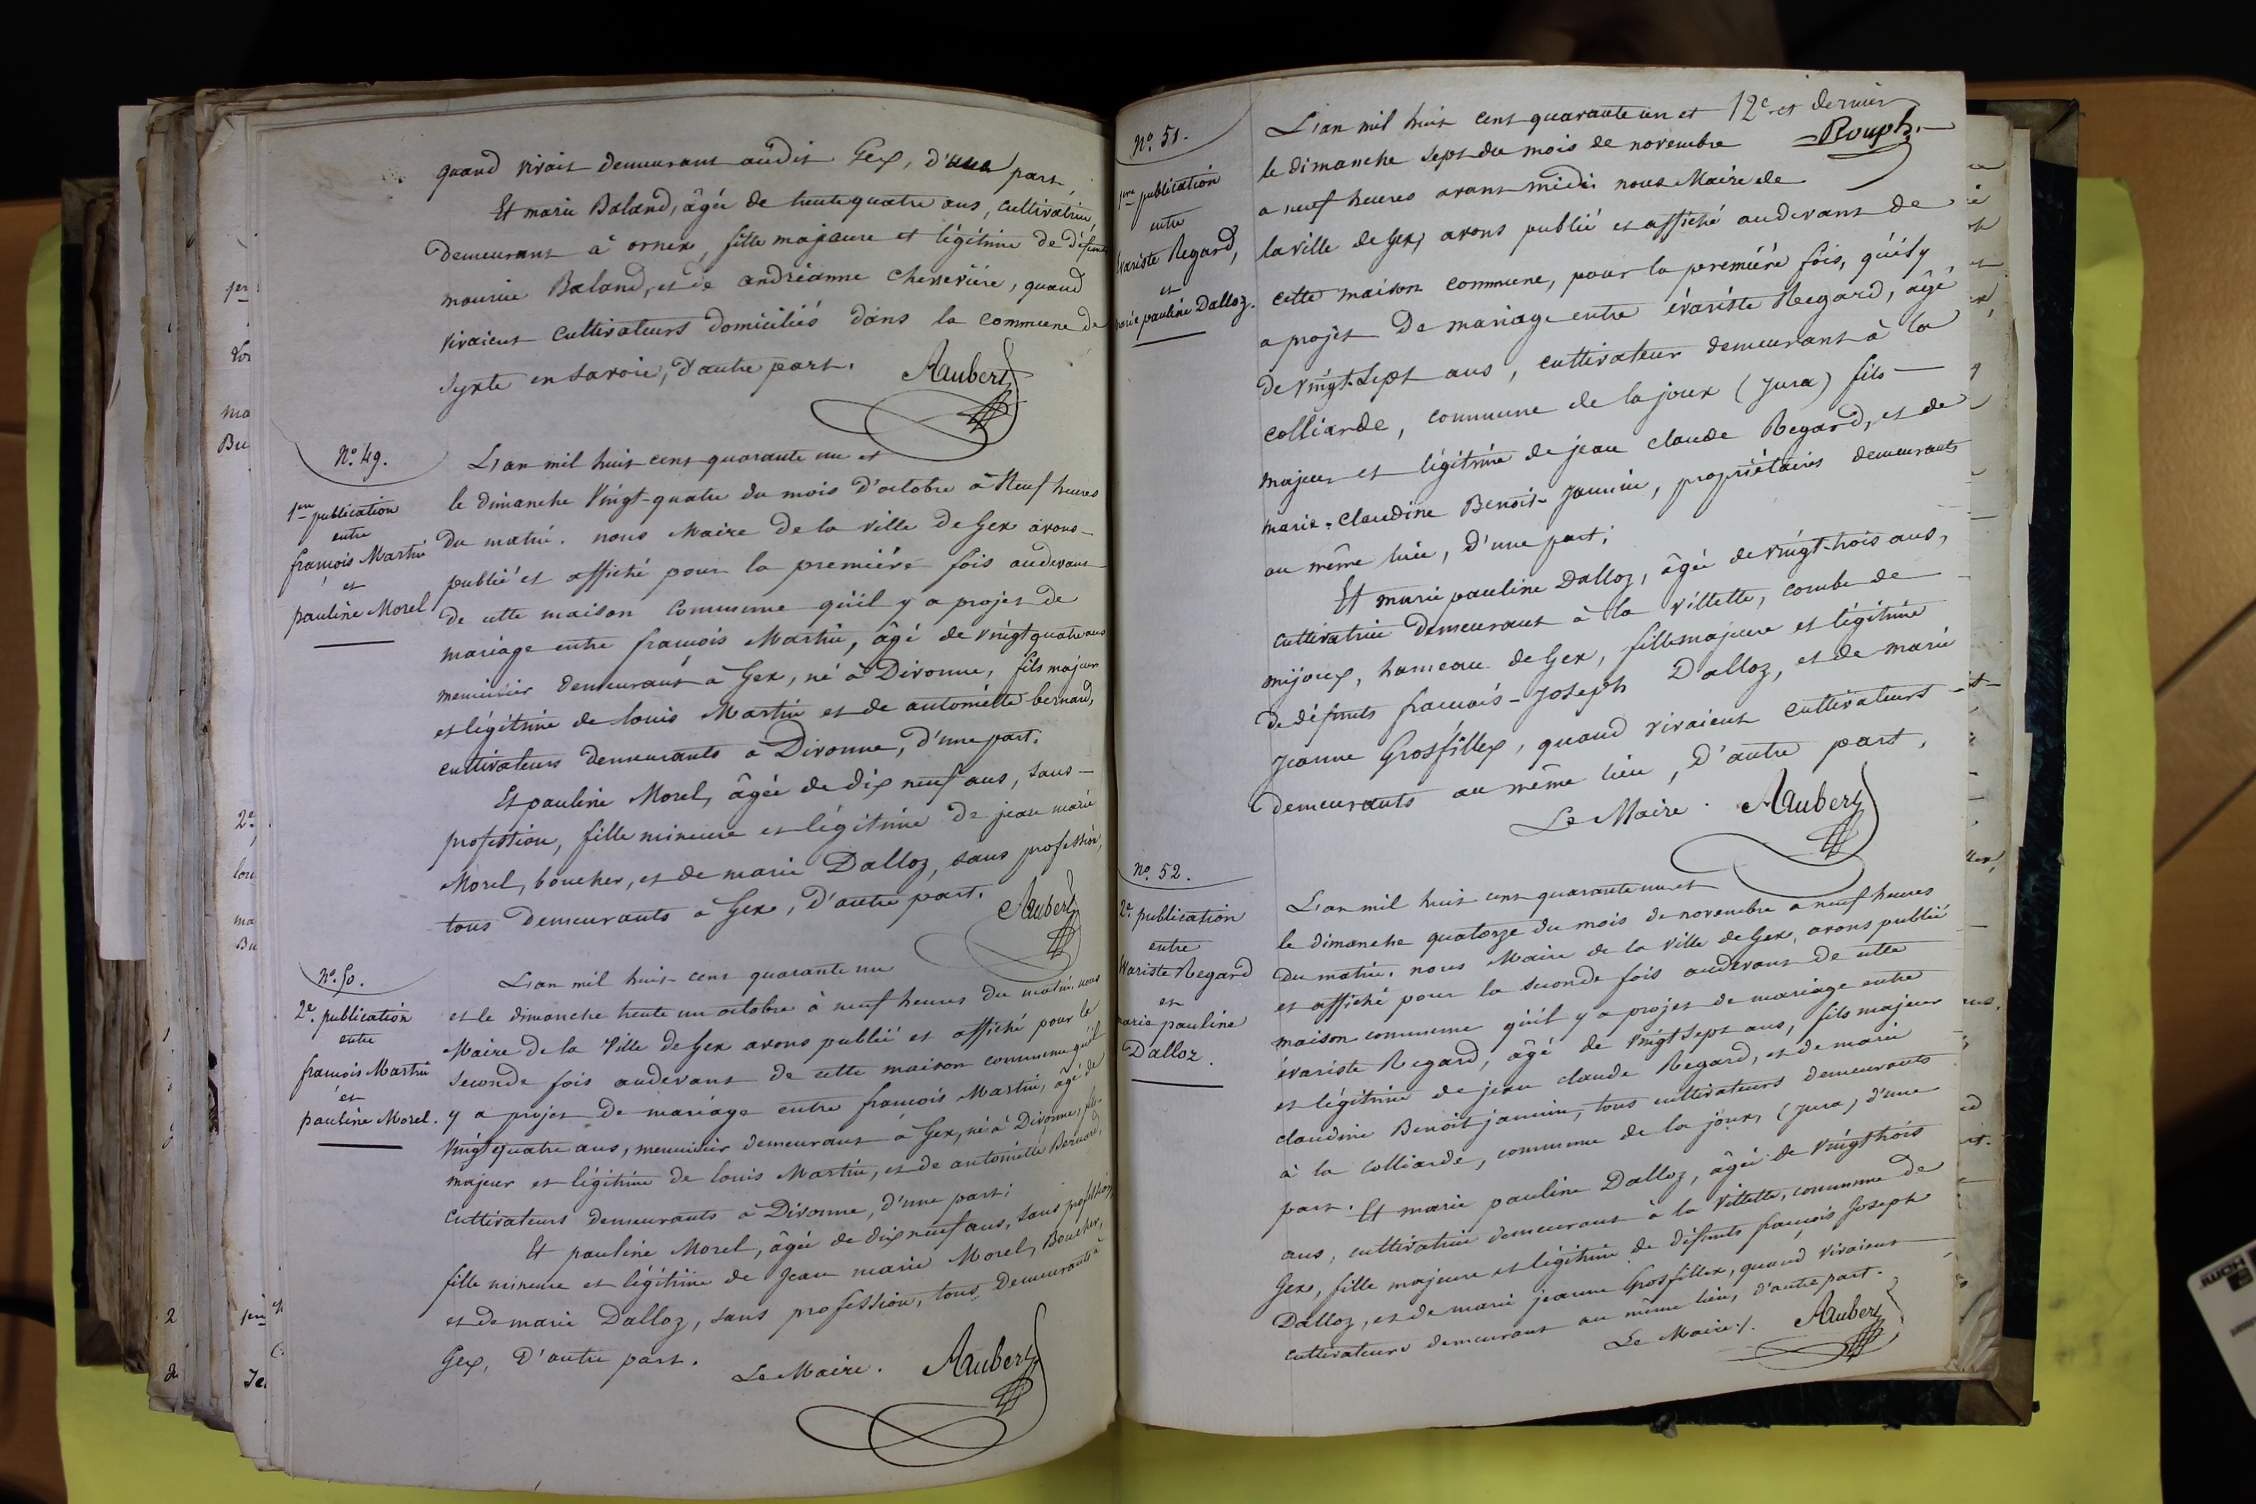 quand vivait demeurant audit Gex, d'une part,
Et marie Baland, âgée de trente quatre ans, cultivatrice,
demeurant à ornex, fille majeure et légitime de défunts
maurice Baland, et de andréanne chenevière, quand
vivaient cultivateurs domiciliés dans la commune de
Syxte en savoie, d'autre part. Aubert
No. 49.
1ere publication
entre
françois Martin
et
pauline Morel
L'an mil huit cent quarante un et
le dimanche Vingt-quatre du mois d'octobre à Neuf heures
du matin. nous Maire de la ville de Gex avons
publié et affiché pour la première fois audevant
de cette maison commune qu'il y a projet de
mariage entre françois Martin, âgé de vingt quatre ans
meunier demeurant à Gex, né à Divonne, fils majeur
et légitime de Louis Martin et de antoinette bernard,
cultivateurs demeurants à Divonne, d'une part.
Et pauline Morel, âgée de dix neuf ans, sans
profession, fille mineure et légitime de jean marie
Morel, boucher, et de marie Dalloz, sans profession,
tous demeurants à Gex, d'autre part. Aubert
No. 50.
2e. publication
entre
françois Martin
et
pauline Morel.
L'an mil huit cent quarante un
et le dimanche trente un octobre à neuf heures du matin. nous
Maire de la Ville de Gex avons publié et affiché pour le
seconde fois audevant de cette maison commune qu'il
y a projet de mariage entre françois Martin, âgé de
Vingt quatre ans, meunier demeurant à Gex, né à Divonne, fils
majeur et légitime de Louis Martin, et de antoinette Bernard,
cultivateurs demeurants à Divonne, d'une part;
Et pauline Morel, âgée de dix neuf ans, sans profession,
fille mineure et légitime de Jean marie Morel, Boucher,
et de marie Dalloz, sans profession, tous demeurants à
Gex, d'autre part.
Le Maire. Aubert
12e et dernier
Rouph
No. 51.
1ere publication
entre
Evariste Regard,
et
marie pauline Dalloz.
L'an mil huit cent quarante un et
le dimanche sept du mois de novembre
a neuf heures avant midi nous Maire de
la ville de Gex, avons publié et affiché audevant de
cette maison commune, pour la première fois, qu'il y
a projet de mariage entre évariste Regard, âgé
de vingt-sept ans, cultivateur demeurant à la
colliarde, commune de la joux (Jura) fils
majeur et légitime de jean claude Regard, et de
marie-claudine Benoit-jannin, propriétaires demeurants
au même lieu, d'une part;
Et marie pauline Dalloz, âgée de vingt-trois ans,
cultivatrice demeurant à la villette, combe de
mijoux, hameau de Gex, fille majeure et légitime
de défunts francois-Joseph Dalloz, et de marie
jeanne Grosfillex, quand vivaient cultivateurs
demeurants au même lieu, d'autre part.
Le Maire. Aubert
No. 52.
2e. publication
entre
Evariste Regard
et
marie pauline
Dalloz.
L'an mil huit cent quarante un et
le dimanche quatorze du mois de novembre a neuf heures
du matin. nous Maire de la ville de Gex, avons publié
et affiché pour la seconde fois audevant de cette
maison commune qu'il y a projet de mariage entre
évariste Regard, âgé de vingt sept ans, fils majeur
et légitime de jean claude Regard, et de marie
claudine Benoit jannin, tous cultivateurs demeurants
à la colliarde, commune de la joux, (jura) d'une
part. Et marie pauline Dalloz, âgée de vingt trois
ans, cultivatrice demeurant à la villette, commune de
Gex, fille majeure et légitime de défunts françois Joseph
Dalloz, et de marie jeanne Grosfillex, quand vivaient
cultivateurs demeurant au même lieu, d'autre part.
Le Maire. Aubert